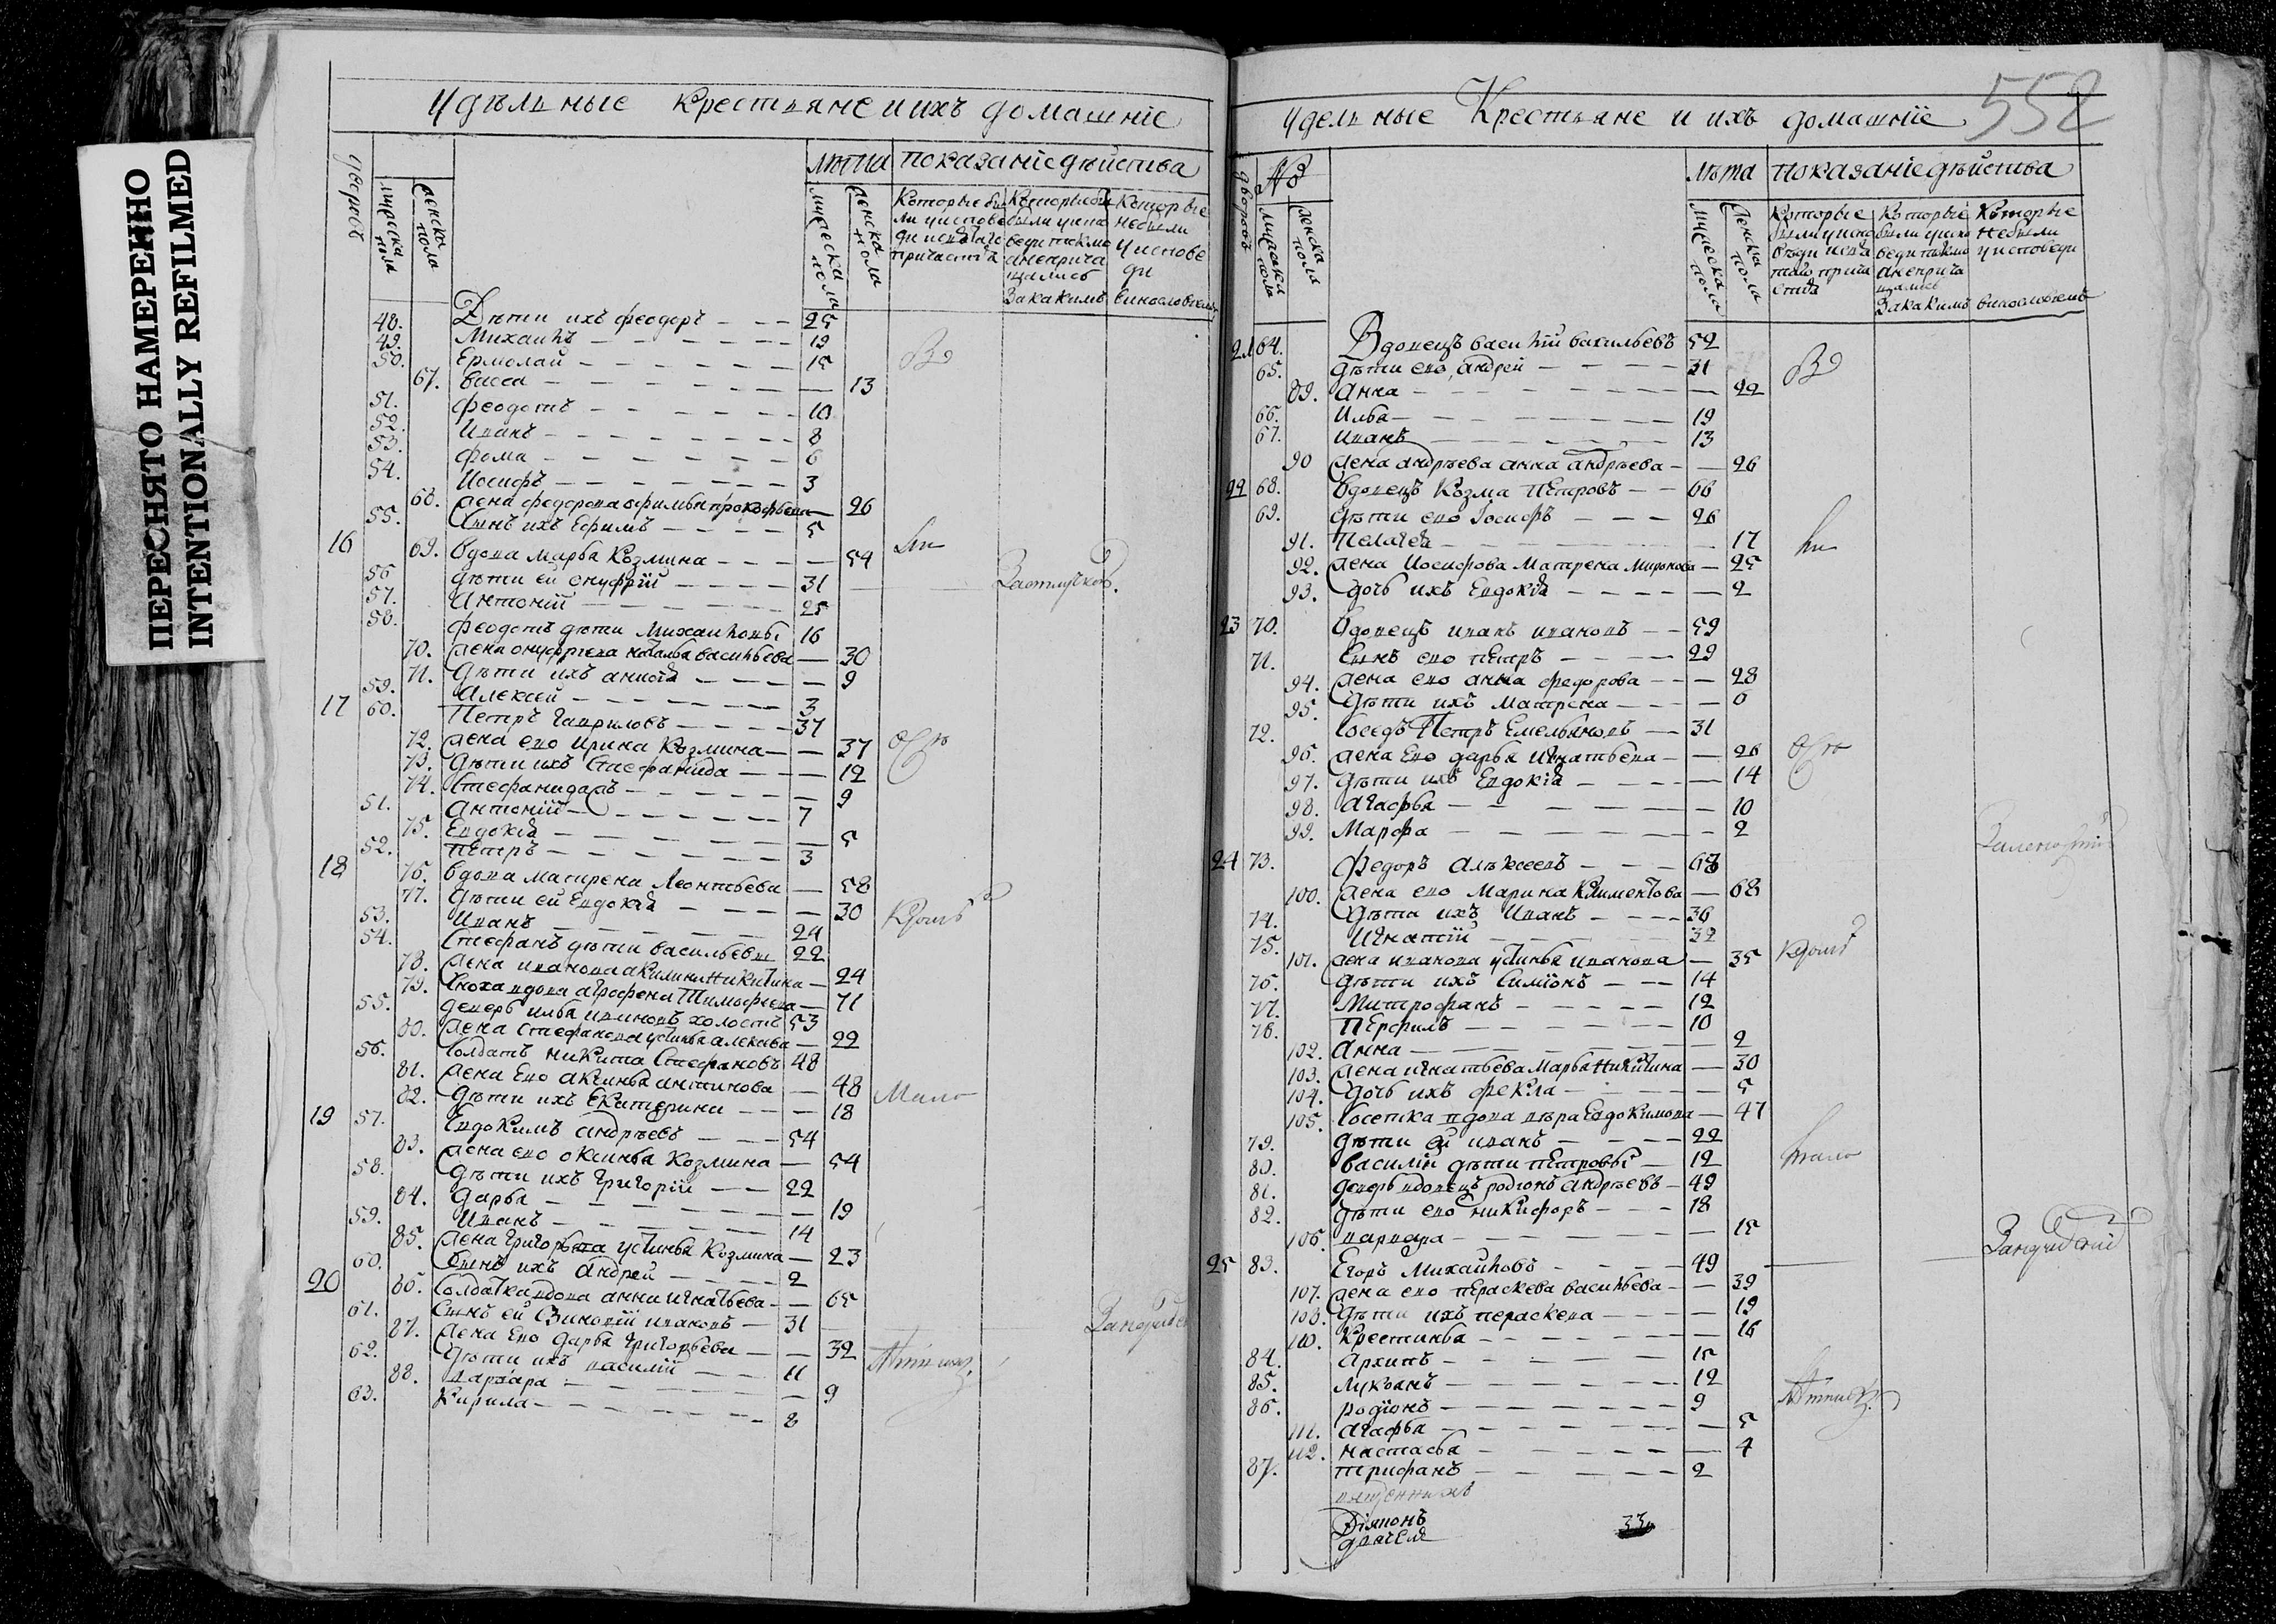 ПЕРЕСНЯТО НАМЕРЕННО
INTENTIONALLY REFILMED
Удѣлные Крестьяне и ихъ домашніе
дворовъ
мужеска пола
женска пола
лѣта
показаніе дѣйства
мужеска пола
женска пола
Которые бы
ли у испове
ди и
причастія
Которые бы
были у испо
веди токмо
а неприча
щались
За какимъ
Которые
небыли
у испове
ди
винословіемъ
48. Дѣти ихъ феодоръ 25
49. Михаилъ 19
50. Ермолай 15
67. васса 13
51. феодотъ 10
52. Иванъ 8
53. фома 6
54. Иосифъ 3
68. жена федорова офимья прокофьева 26
55. Сынъ ихъ Ефимъ 5
16 69. вдова марья Козмина 54
56 дѣти ей енуфрій 31
57. Антоній 25
58. феодотъ дѣти Михаиловы 16
70. жена онуфриева наталья васильева 30
71. Дѣти ихъ анисья 9
59. Алексей 3
17 60. Петръ Гавриловъ 37
72. жена ево Ирина Козмина 37
73. Дѣти ихъ Стефанида 12
74. Стефанида 9
51. Антоній 7
75. Евдокія 5
52. Петръ 3
18 76. вдова матрена Леонтьева 58
77. Дѣти ей Евдокія 30
53. Иванъ 24
54. Стефанъ дѣти васильевы 22
78. жена иванова акилина никитина 24
79. Сноха вдова аграфена Тимофеева 71
55. деверь илья ивановъ холостъ 53
80. жена стефанова устинья алексева 22
56. Солдатъ никита Стефановъ 48
81. жена Ево аксинья антипова 48
82. Дѣти ихъ Екатерина 18
19 57. Евдокимъ андрѣевъ 54
83. жена ево оксинья Козмина 54
58. Дѣти ихъ Григорій 22
84. дарья 19
59. Иванъ 14
85. жена Григорьева устинья Козмина 23
60. Сынъ ихъ андрей 2
20 86. Солдатка вдова анна игнатьева 65
61. Сынъ ей Зиновій ивановъ 31
87. жена Ево дарья григорьева 32
62. Дѣти ихъ василій 11
88. варвара 9
63. Кирила 8
552
Уделные Крестьяне и ихъ домашніе
дворовъ
№
мужеска пола
женска пола
лѣта
показаніе дѣйства
мужеска пола
женска пола
Которые
были у испо
вѣди и свя
тай прича
стія
Которые
были у испо
веди токмо
а неприча
щались
За какимъ
Которые
небыли
у исповеди
винословіемъ
21 64. Вдовецъ василій васильевъ 52
65. дѣти ево, андрей 31
89. Анна 22
66. Илья 19
67. Иванъ 13
90 жена андрѣева анна андрѣева 26
22 68. вдовецъ Козма Петровъ 66
69. дѣти ево Іосифъ 26
91. Пелагея 17
92. жена Иосифова Матрена Миронова 25
93. дочь ихъ Евдокія 2
23 70. вдовецъ иванъ ивановъ 59
71. Сынъ ево петръ 29
94. жена ево анна федорова 28
95. дѣти ихъ матрена 6
72. Соседъ Петръ Емельяновъ 31
96. жена Ево дарья Игнатьева 26
97. дѣти ихъ Евдокія 14
98. Агафья 10
99. Марфа 2
24 73. федоръ Алѣксеевъ 68
100. жена ево Марина Климентова 68
74. дѣти ихъ Иванъ 36
75. Игнатій 32
101. жена иванова устинья иванова 35
76. дѣти ихъ Симіонъ 14
77. Митрофанъ 12
78. Перфилъ 10
102. Анна 2
103. жена игнатьева Марья никитина 30
104. дочь ихъ фекла 5
105. Соседка вдова вѣра Евдокимова 47
79. дѣти ей иванъ 22
80. василій дѣти петровы 12
81. деверь вдовецъ родіонъ андрѣевъ 49
82. дѣти ево никифоръ 18
106. варвара 15
25 83. Егоръ Михаиловъ 49
107. жена ево пераскева васильева 39
108. дѣти ихъ пераскева 19
110. Крестинья 16
84. архипъ 15
85. лукьянъ 12
86. родіонъ 9
111. Агафья 5
112. настасья 4
87. трифанъ 2
священникъ
Діяконъ